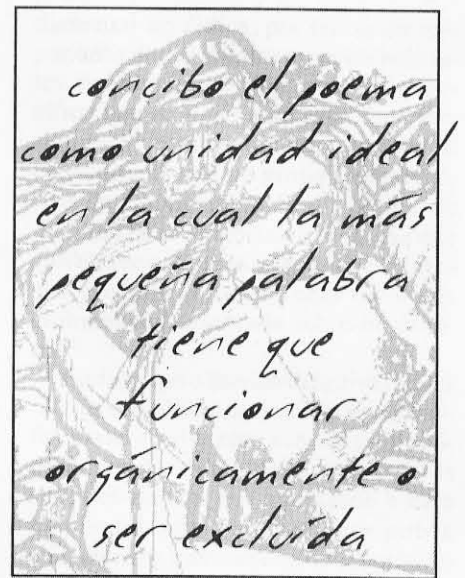 concibo el poema
como unidad ideal
en la cual la más
pequeña palabra
tiene que
funcionar
orgánicamente o
ser excluída